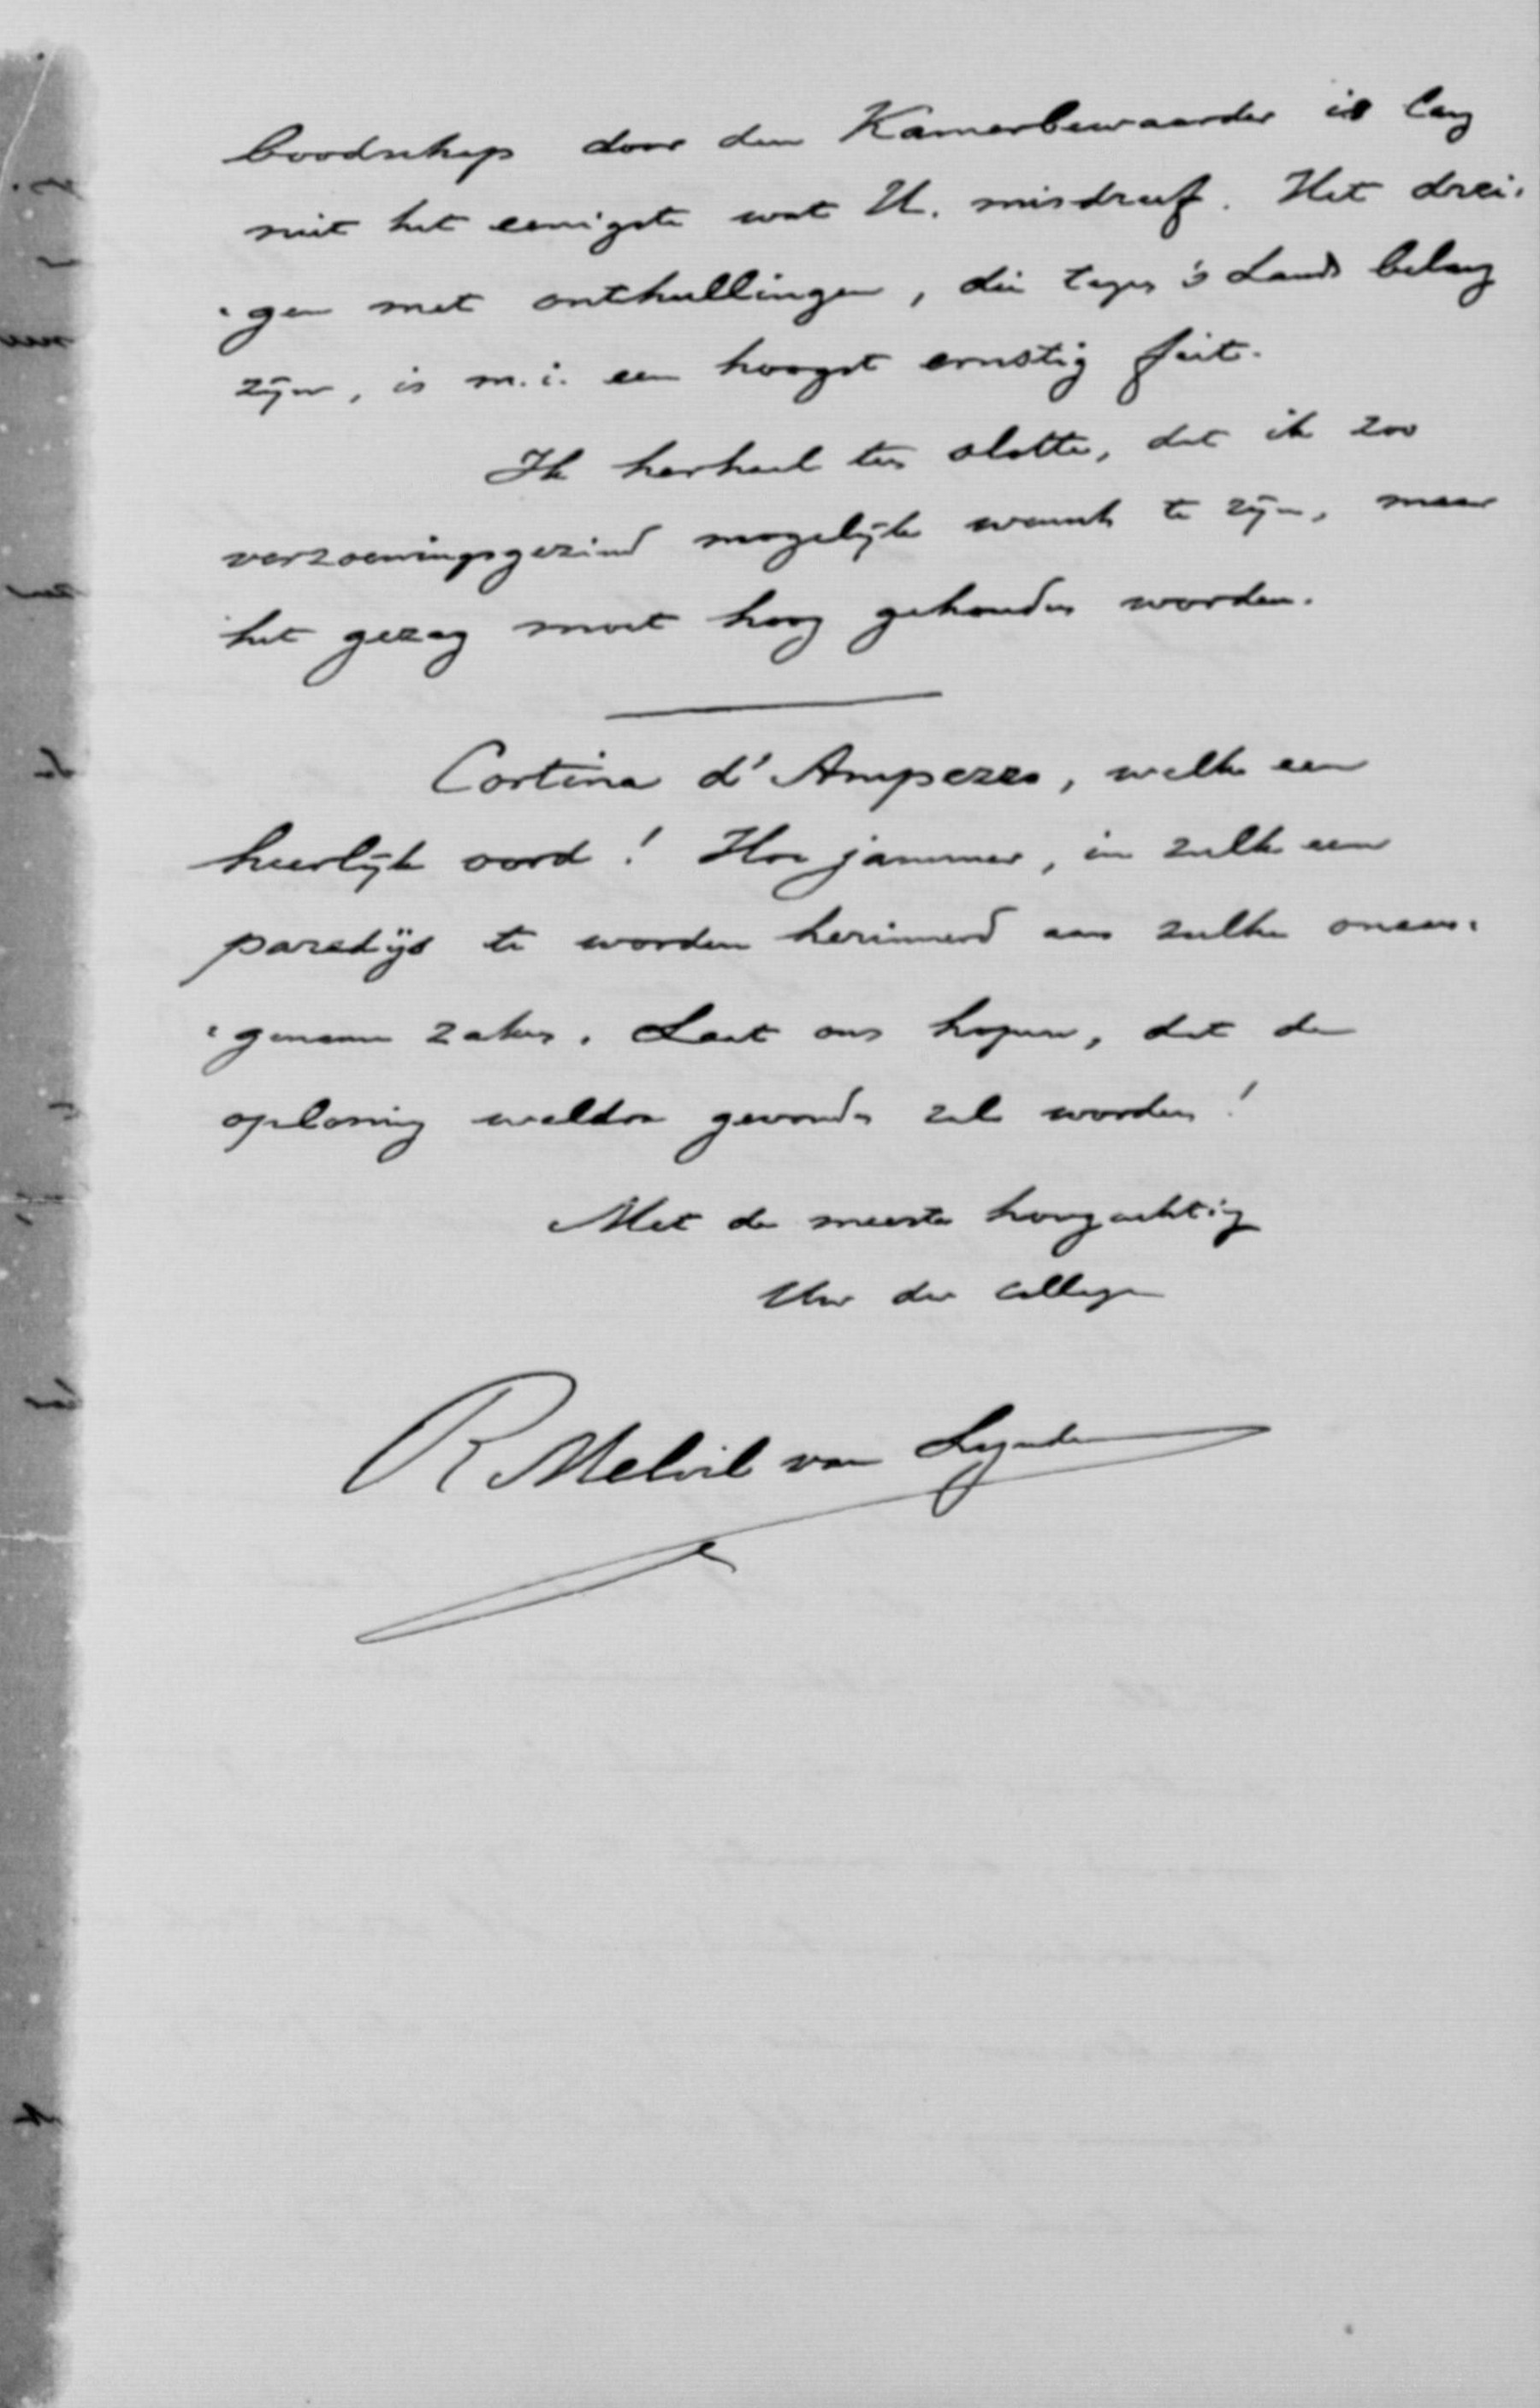 boodschap door den Kamerbewaarder is lang
niet het eenigste wat U. misdreef. Het drei-
-gen met onthullingen, die tegen 's Lands belang
zijn, is m.i. een hoogst ernstig feit.
Ik herhaal ten slotte, dat ik zoo
verzoeningsgezind mogelijk wensch te zijn, maar
het gezag moet hoog gehouden worden.
Cortina d'Ampezzo, welk een
heerlijk oord! Hoe jammer, in zulk een
paradijs te worden herinnerd aan zulke onaan-
-gename zaken. Laat ons hopen, dat de
oplossing weldra gevonden zal worden!
Met de meeste hoogachting
Uw dw collega
R Melvil van Lynden